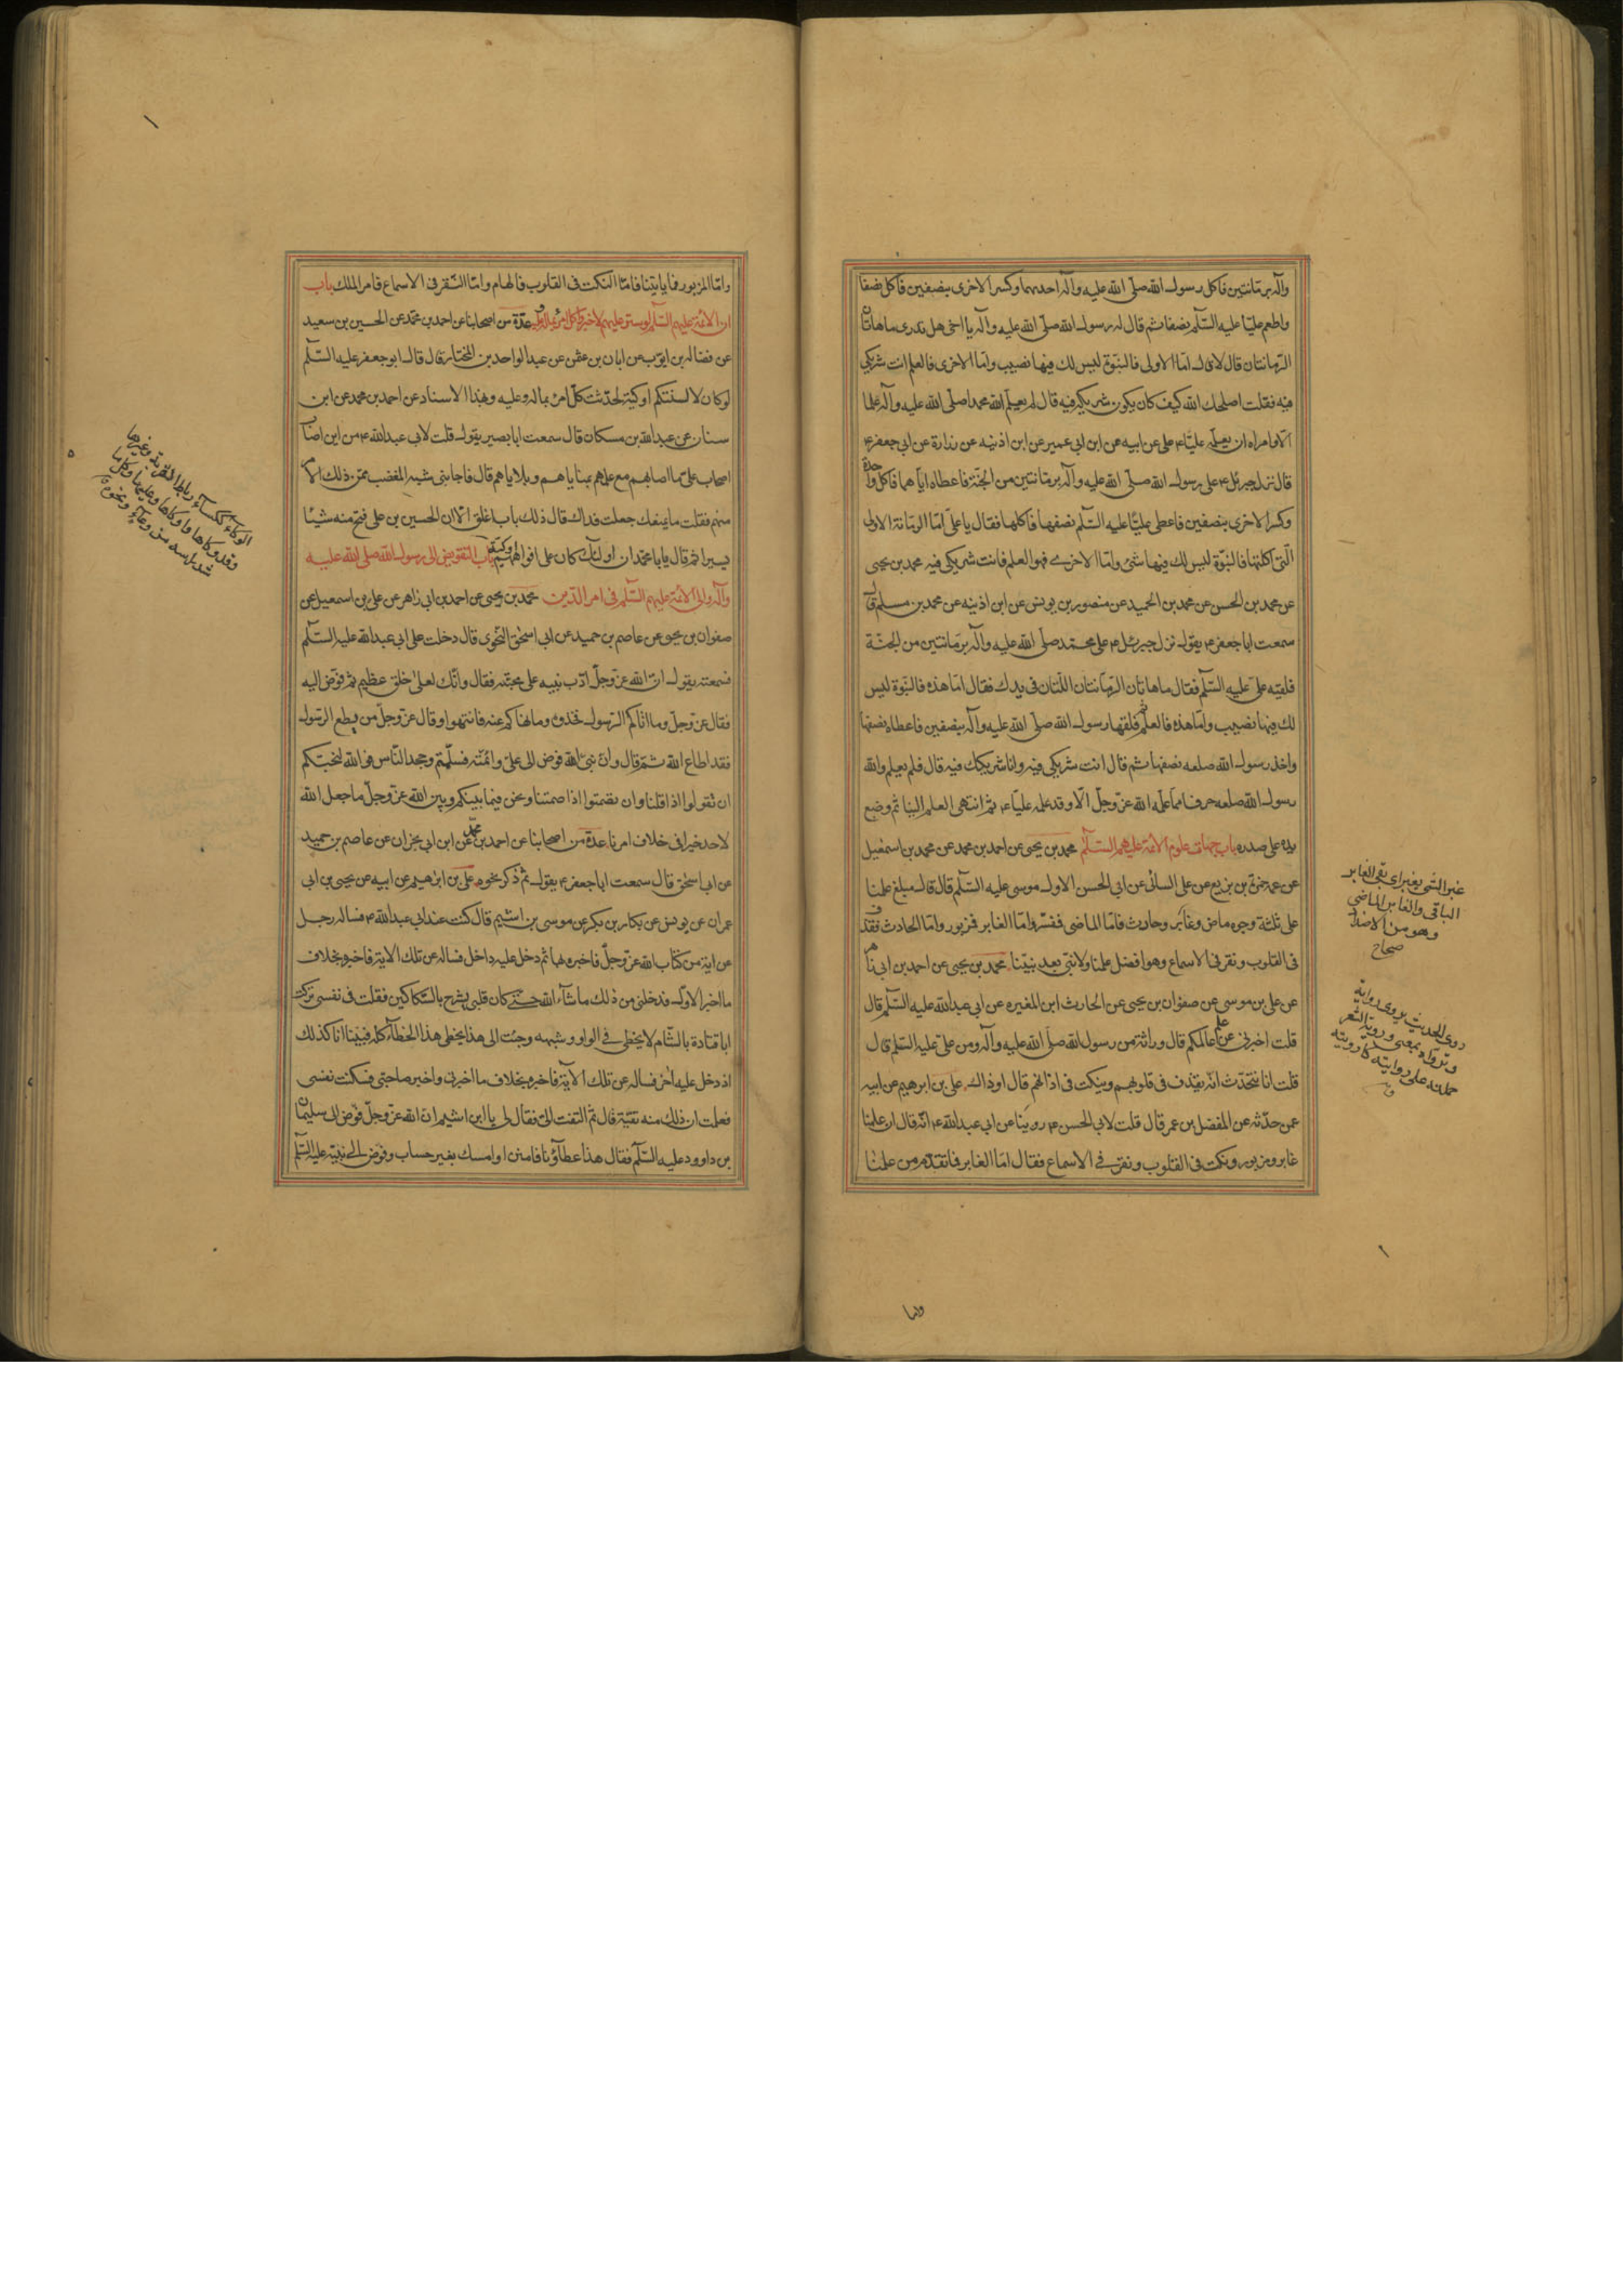 وآله برمانتين فاكل رسول الله صلّى الله عليه وآله احديهما وكسر الاخرى بنصفين فاكل نصفا
واطعم عليّا عليه السّلم نصفا ثم قال له رسول الله صلّى الله عليه وآله يا اخى هل تدرى ما هاتان
الرّمانتان قال لا قال امّا الاولى فالنبوّة ليس لك فيها نصيب وامّا الاخرى فالعلم انت شريكى
فيه فقلت اصلحك الله كيف كان يكون شريكه فيه قال لم يعلّم الله محمدا صلّى الله عليه وآله علما
الّا وامره ان يعلّمه عليّا ع على عن ابيه عن ابن ابى عمير عن ابن اذينه عن زرارة عن ابى جعفر ع
قال نزل جبرئل ع على رسول الله صلّى الله عليه وآله برمانتين من الجنّة فاعطاه ايّاهما فاكل واحدة
وكسر الاخرى بنصفين فاعطى عليّا عليه السّلم نصفها فاكلها فقال يا علىّ امّا الرمّانة الاولى
الّتى اكلتها فالنبّوة ليس لك فيها شئ وامّا الاخرى فهو العلم فانت شريكى فيه محمد بن يحيى
عن محمد بن الحسن عن محمد بن الحميد عن منصور بن يونس عن ابن اذينه عن محمد بن مسلم قال
سمعت ابا جعفر ع يقول نزل جبرئل ع على محمّد صلّى الله عليه وآله برمّانتين من الجنّة
فلقيه علىّ عليه السّلم فقال ما هاتان الرّمّانتان اللّتان فى يدك فقال امّا هذه فالنبّوة ليس
لك فيها نصيب وامّا هذه فالعلم ثم فلقها رسول الله صلّى الله عليه وآله بنصفين فاعطاه نصفها
واخذ رسول الله صلعم نصفها ثم قال انت شريكى فيه وانا شريكك فيه قال فلم يعلم والله
رسول الله صلعم حرفا ممّا علّمه الله عزّ وجلّ الّا وقد علمه عليّا ع ثمّ انتهى العلم الينا ثم وضع
يده على صدره باب جهات علوم الائمة عليهم السّلم محمد بن يحيى عن احمد بن محمد عن محمد بن اسمعيل
عن عمه حمزة بن بزيع عن على السائى عن ابى الحسن الاول موسى عليه السّلم قال قال مبلغ علمنا
على ثلثة وجوه ماض وغابر وحادث فامّا الماضى فمفسّر وامّا الغابر فمزبور وامّا الحادث فقذف
فى القلوب ونقر فى الاسماع وهو افضل علمنا ولا نبىّ بعد نبيّنا محمد بن يحيى عن احمد بن ابى زاهر
عن على بن موسى عن صفوان بن يحيى عن الحارث ابن المغيره عن ابى عبد الله عليه السّلم قال
قلت اخبرنى عن علم عالمكم قال وراثة من رسول الله صلّى الله عليه وآله ومن علىّ عليه السّلم قال
قلت انا نتحّدث انّه يقذف فى قلوبهم وينكت فى اذانهم قال او ذاك على بن ابرهيم عن ابيه
عمن حدّثه عن المفضل بن عمر قال قلت لابى الحسن ع روينا عن ابى عبد الله ع انّه قال ان علمنا
غابر ومزبور ونكت فى القلوب ونقر فى الاسماع فقال امّا الغابر فما تقدّم من علمنا
غبر الشّئ يغبر اى بقى الغابر
الباقى والغابر الماضى
وهو من الاضداد
صحاح
روى الحديث يروى رواية
وتروّاه بمعنى وروية الشعر
حملته على روايته كارويته
ق
واما
وامّا المزبور فما ياتينا فامّا النكت فى القلوب فالهام وامّا النّقر فى الاسماع فامر الملك باب
ان الائمة عليهم السّلم لو ستر عليهم لاخبروا كل امرئ بماله وعليه عدّة من اصحابنا عن احمد بن محمّد عن الحسين بن سعيد
عن فضاله بن ايّوب عن ابان بن عثمن عن عبد الواحد بن المختار قال قال ابو جعفر عليه السّلم
لو كان لالسنتكم اوكية لحدّثت كلّ امرئ بماله وعليه وبهذا الاسناد عن احمد بن محمد عن ابن
سنان عن عبد الله بن مسكان قال سمعت ابا بصير يقول قلت لابى عبد الله ع من اين اصاب
اصحاب علىّ ما اصابهم مع علمهم بمناياهم وبلاياهم قال فاجابنى شبه المغضب ممّن ذلك الّا
منهم فقلت ما يمنعك جعلت فداك قال ذلك باب اغلق الّا ان الحسين بن على فتح منه شيئا
يسيرا ثم قال يابا محمّد ان اولئك كان على افواههم اوكية باب التّفويض الى رسول الله صلى الله عليه
وآله والى الائمّة عليهم السّلم فى امر الدّين محمد بن يحيى عن احمد بن ابى زاهر عن على بن اسمعيل عن
صفوان بن يحيى عن عاصم بن حميد عن ابى اسحق النّحوى قال دخلت على ابى عبد الله عليه السّلم
فسمعته يقول انّ الله عزّ وجلّ ادّب نبيه على محبّته فقال وانّك لعلى خلق عظيم ثم فوّض اليه
فقال عزّ وجلّ وما اتاكم الرّسول فخذوه وما نهاكم عنه فانتهوا وقال عزّ وجلّ من يطع الرّسول
فقد اطاع الله ثمّ قال وان نبى الله فوض الى علىّ وائمّته فسلّمتم وجحد النّاس فوالله لنحبّكم
ان تقولوا اذا قلنا وان تصمتوا اذا صمتنا ونحن فيما بينكم وبين الله عزّ وجلّ ما جعل الله
لاحد خيرا فى خلاف امرنا عدّة من اصحابنا عن احمد بن محمّد عن ابن ابى نجران عن عاصم بن حميد
عن ابى اسحق قال سمعت ابا جعفر ع يقول ثم ذكر نحوه على بن ابرهيم عن ابيه عن يحيى بن ابى
عمران عن يونس عن بكار بن بكر عن موسى بن اشيم قال كنت عند ابى عبد الله ع فساله رجل
عن اية من كتاب الله عزّ وجلّ فاخبره بها ثم دخل عليه داخل فساله عن تلك الاية فاخبره بخلاف
ما اخبر الاوّل فدخلنى من ذلك ما شاء الله حتى كان قلبى يشرح بالسّكاكين فقلت فى نفسى تركت
ابا قتادة بالشّام لا يخطى فى الواو وشبهه وجئت الى هذا يخطى هذا الخطاء كله فبينا انا كذلك
اذ دخل عليه اخر فساله عن تلك الاية فاخبره بخلاف ما اخبرنى واخبر صاحبى فسكنت نفسى
فعلمت ان ذلك منه تقيّة قال ثمّ التفت الىّ فقال لى يا ابن اشيم ان الله عزّ وجلّ فوّض الى سليمان
بن داوود عليه السّلم فقال هذا عطاؤنا فامنن او امسك بغير حساب وفوّض الى نبيّه عليه السّلم
الوكاء ككساء رباط القربة وغيرها
وقد وكاها واوكاها وعليها وكل ما
شد راسه من وعاء ونحوه